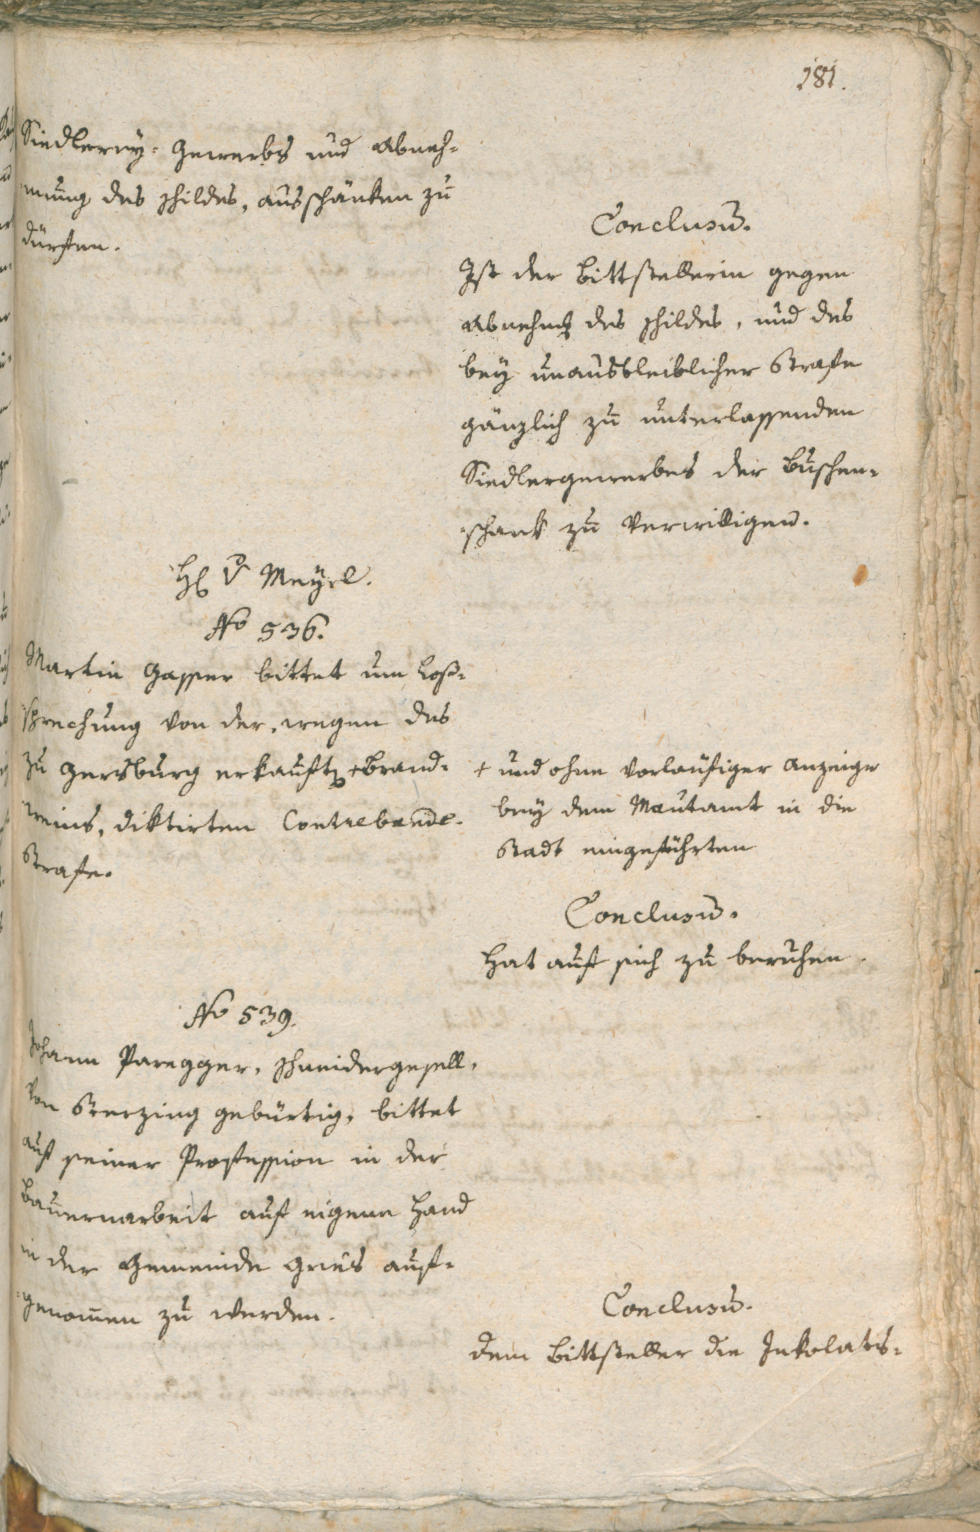 181.
Siedlerey-Gewerbs und Abneh-
mung des Schildes, ausschänken zu
dürfen.
Conclusum.
Ist der Bittstellerin gegen
Abnehmung des Schildes, und des
bey unausbleiblicher Strafe
gänzlich zu unterlassenden
Siedlergewerbes der Buschen-
schank zu verwilligen.
H. v Mayrl.
No 536.
Martin Gasser bittet um Loß-
sprechung von der, wegen des
zu Gersburg erkauften + Brand-
weins, diktirten Contrebande-
Strafe.
+ und ohne vorläufiger Anzeige
bey dem Mautamt in die
Stadt eingeführten
Conclusum.
Hat auf sich zu beruhen.
No 539.
Johann Paregger, Schneidergesell,
von Sterzing gebürtig, bittet
auf seiner Profession in der
Bauernarbeit auf eigene Hand
in der Gemeinde Gries auf-
genommen zu werden.
Conclusum.
dem Bittsteller die Inkolats-